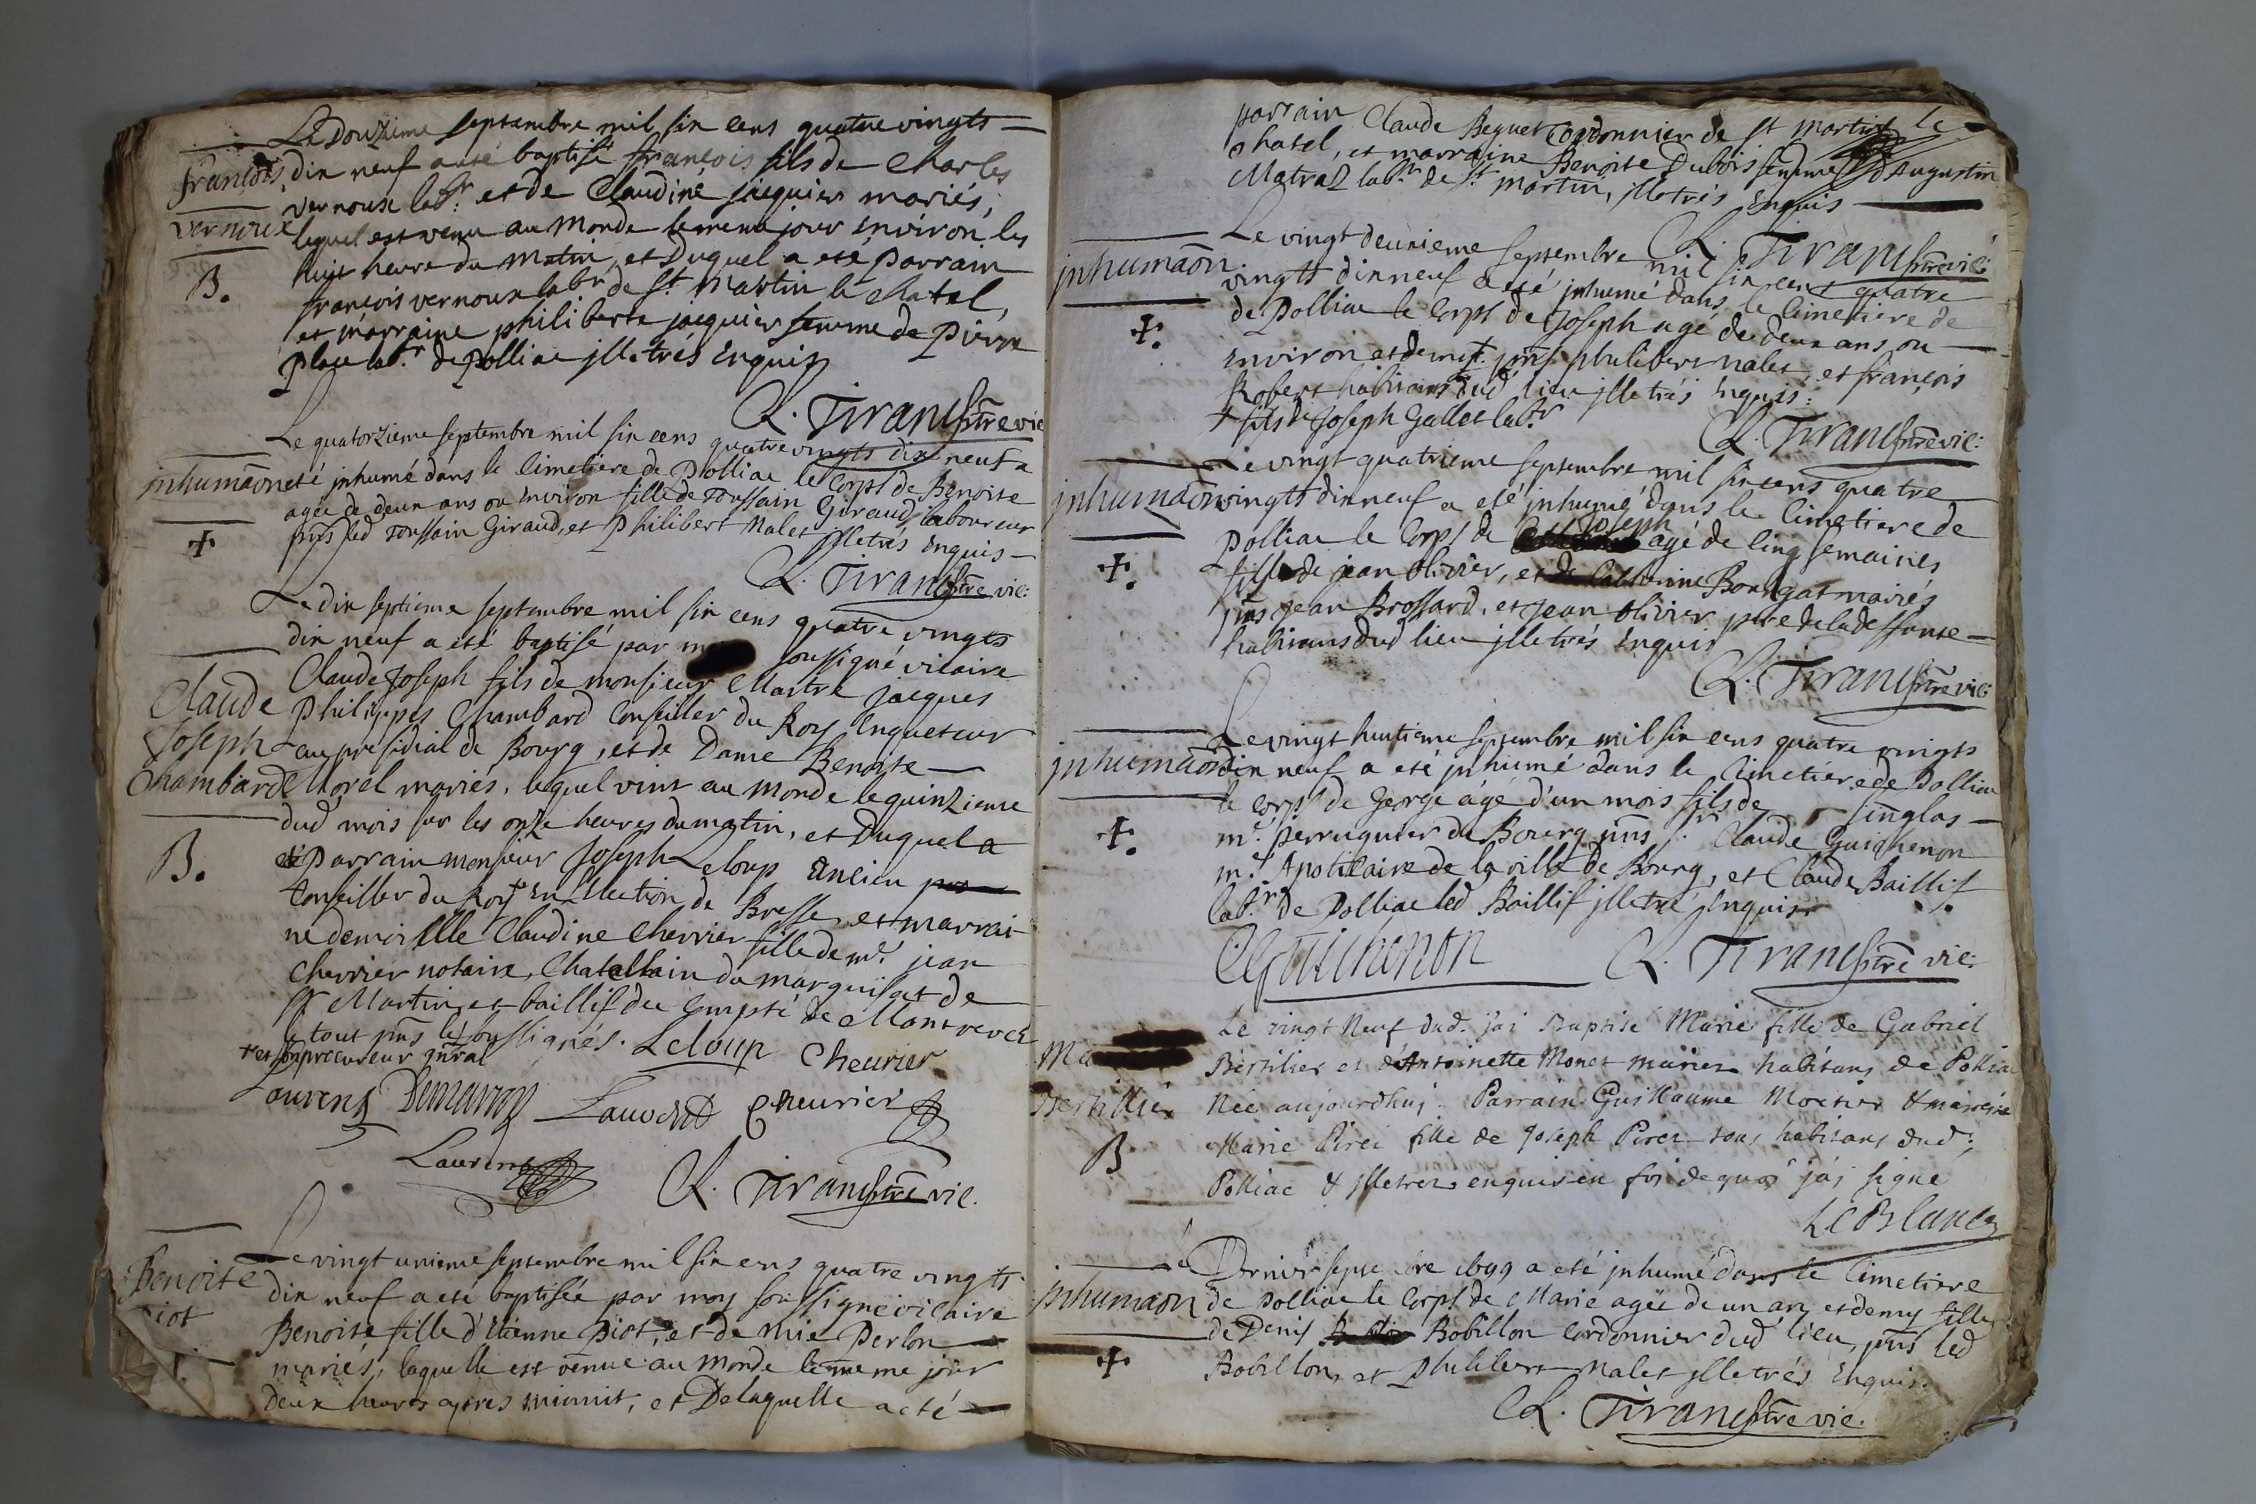 Le Douzieme septembre mil six cens quatre vingts
françois
dix neuf a été baptisé françois fils de Charles
vernoux
vernoux labr. et de Claudine jacquier mariés,
lequel est venu au monde le meme jour environ les
B.
huit heure du matin, et Duquel a eté parrain
françois vernoux labr de St. Martin le Chatel,
et marraine philiberte jacquier femme de Pierre
labr. de polliac illetrés Enquis
Cl. Tirand ptre vic
Le quatorzieme septembre mil six cens quatre vingts dix neuf a
inhumaõn
eté inhumé dans le Cimetiere de Polliac le Corps de Benoite
agée de deux ans ou environ fille de Toussain Giraud laboureur
pñs led Toussain Giraud, et Philibert Nalet illetrés Enquis
Cl. Tirand ptre vic:
Le dix septieme septembre mil six cens quatre vingts
dix neuf a eté baptisé par soussigné vicaire
Claude Joseph Chambard
Claude Joseph fils de monsieur Maitre jacques
Philippes Chambard Conseiller du Roy Enqueteur
au presidial de Bourg, et de Dame Benoite
Morel mariés, lequel vint au monde le quinzieme
dud mois sur les onze heures du matin, et Duquel a
B.
eté Parrain monsieur Joseph Leloup Ancien
Conseiller du Roy + en l'election de Bresse, et marrai-
ne demoiselle Claudine Chevrier fille de mr. jean
Chevrier notaire, Chatellain du marquisat de
St Martin, et baillif du Compté de Montrevel
le tout pñs les soussignés. Leloup Cheurier
+ et son procureur gñral
Laurens Demarron Cheurier
Laurens Cl. Tirand ptre vic.
Le vingt unieme septembre mil six cens quatre vingts
Benoite
dix neuf a eté baptisée par moy soussigné vicaire
Benoite fille d'Etienne Piot, et de mie Perlon
mariés, laquelle est venue au monde le meme jour
deux heures apres minuit, et De laquelle a eté
parrain Claude Beguet Cordonnier de St Martin le
Chatel, et marraine Benoite Dubois femme d'Augustin
Matraz labr. de St. Martin, illetrés Enquis
Cl. Tirand ptre vic:
Le vingt deuxieme septembre mil six cens quatre
inhumaõn
vingts dix neuf a eté inhumé dans le Cimetiere de
de Polliac le Corps de Joseph agé de deux ans ou
environ et demi + pñs philibert nalet, et françois
Robert habitans dud lieu illetrés Enquis:
+ fils de Joseph Gallet labr
Cl. Tirand ptre vic:
Le vingt quatrieme septembre mil six cens quatre
inhumaõn
vingts dix neuf a eté inhumé dans le Cimetiere de
Polliac le Corps de Joseph agé de cinq semaines
fils de jean olivier, et de Catherine mariés
pñs jean Brossard, et Jean olivier pere de la deffunte
habitans dud lieu illetrés Enquis
Cl. Tirand ptre vic:
Le vingt huitieme septembre mil six cens quatre vingts
inhumaõn
dix neuf a eté inhumé dans le Cimetiere de Polliac
le Corps de George agé d'un mois fils de Sr Singlas
mr. perruquier de Bourg pñs Sr. Claude Guichenon
mr. Apoticaire de la ville de Bourg, et Claude Baillif
labr. de Polliac led Baillif illetré Enquis
CGuichenon Cl. Tirand ptre vic:
Le vingt Neuf dud. j'ai Baptisé Marie fille de Gabriel
Bertilier et d'Antoinette Monet mariez habitans de Polliac
Bertillier
Née aujourdhuj. Parrain Guillaume Moirier & marreine
B
Marie Pirei fille de Joseph Pirez tous habitans dud;
Polliac & illetrez enquis en foi de quoi j'ai signé
LeBlanc
Dernier septembre 1699 a eté inhumé dans le Cimetiere
inhumaõn
de Polliac le Corps de Marie agée de un an et demy fille
de Denis Bobillon Cordonnier dud lieu, pñs led
Bobillon, et Philibert Nalet illetrés Enquis.
Cl. Tirand ptre vic.